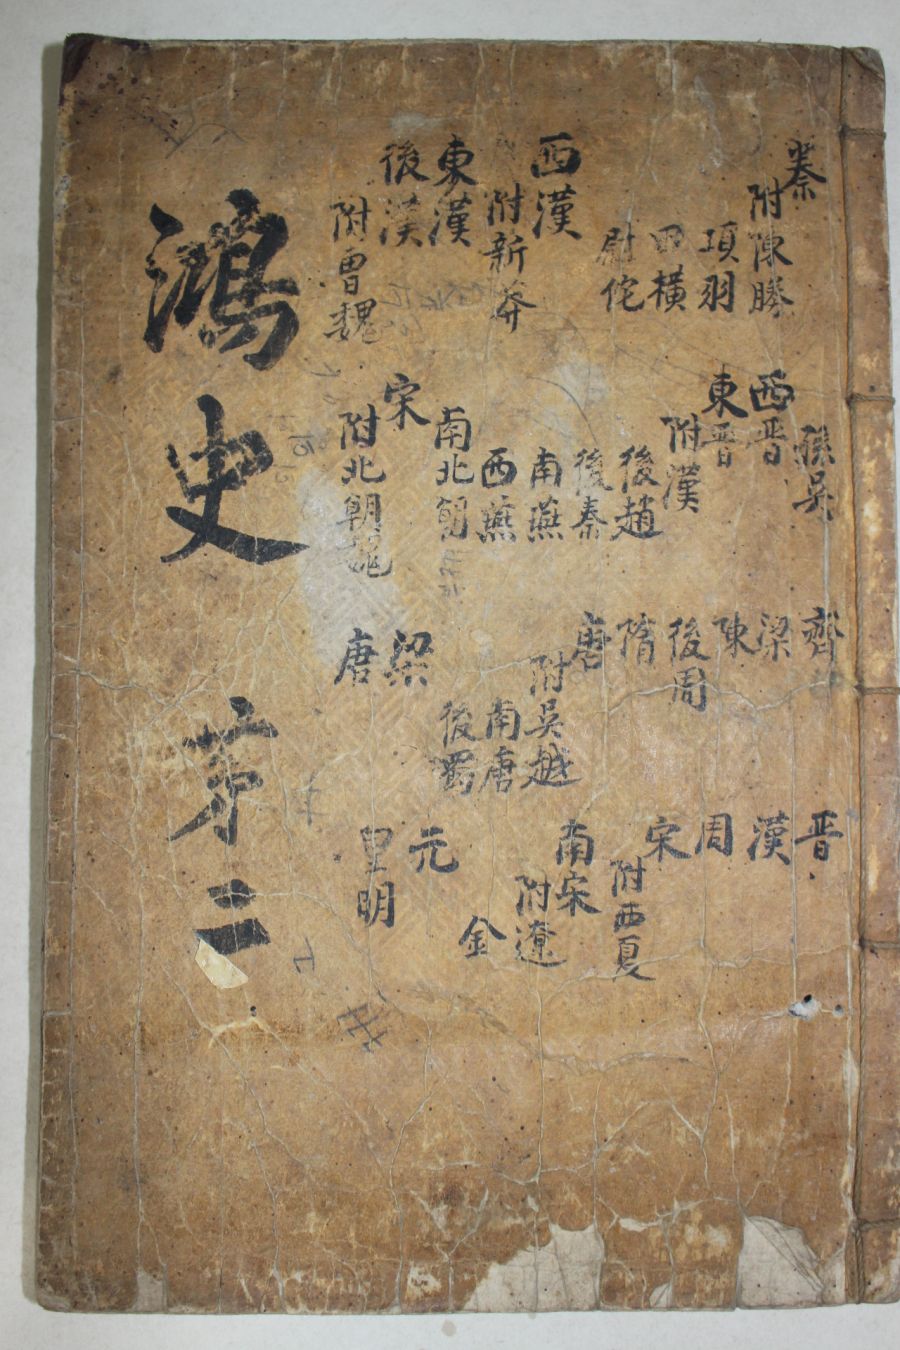 秦
附陳勝
項羽
田橫
尉佗
西漢
附新莽
東漢
後漢
附曹魏
孫吳
西晋
東晋
附漢
後趙
後秦
南燕
西燕
南北朝
宋
附北朝魏
齊
梁
陳
後周
隋
唐
附吳越
南唐
後蜀
梁
唐
晋
漢
周
宋
附西夏
南宋
附遼
金
元
皇明
鴻史 苐二